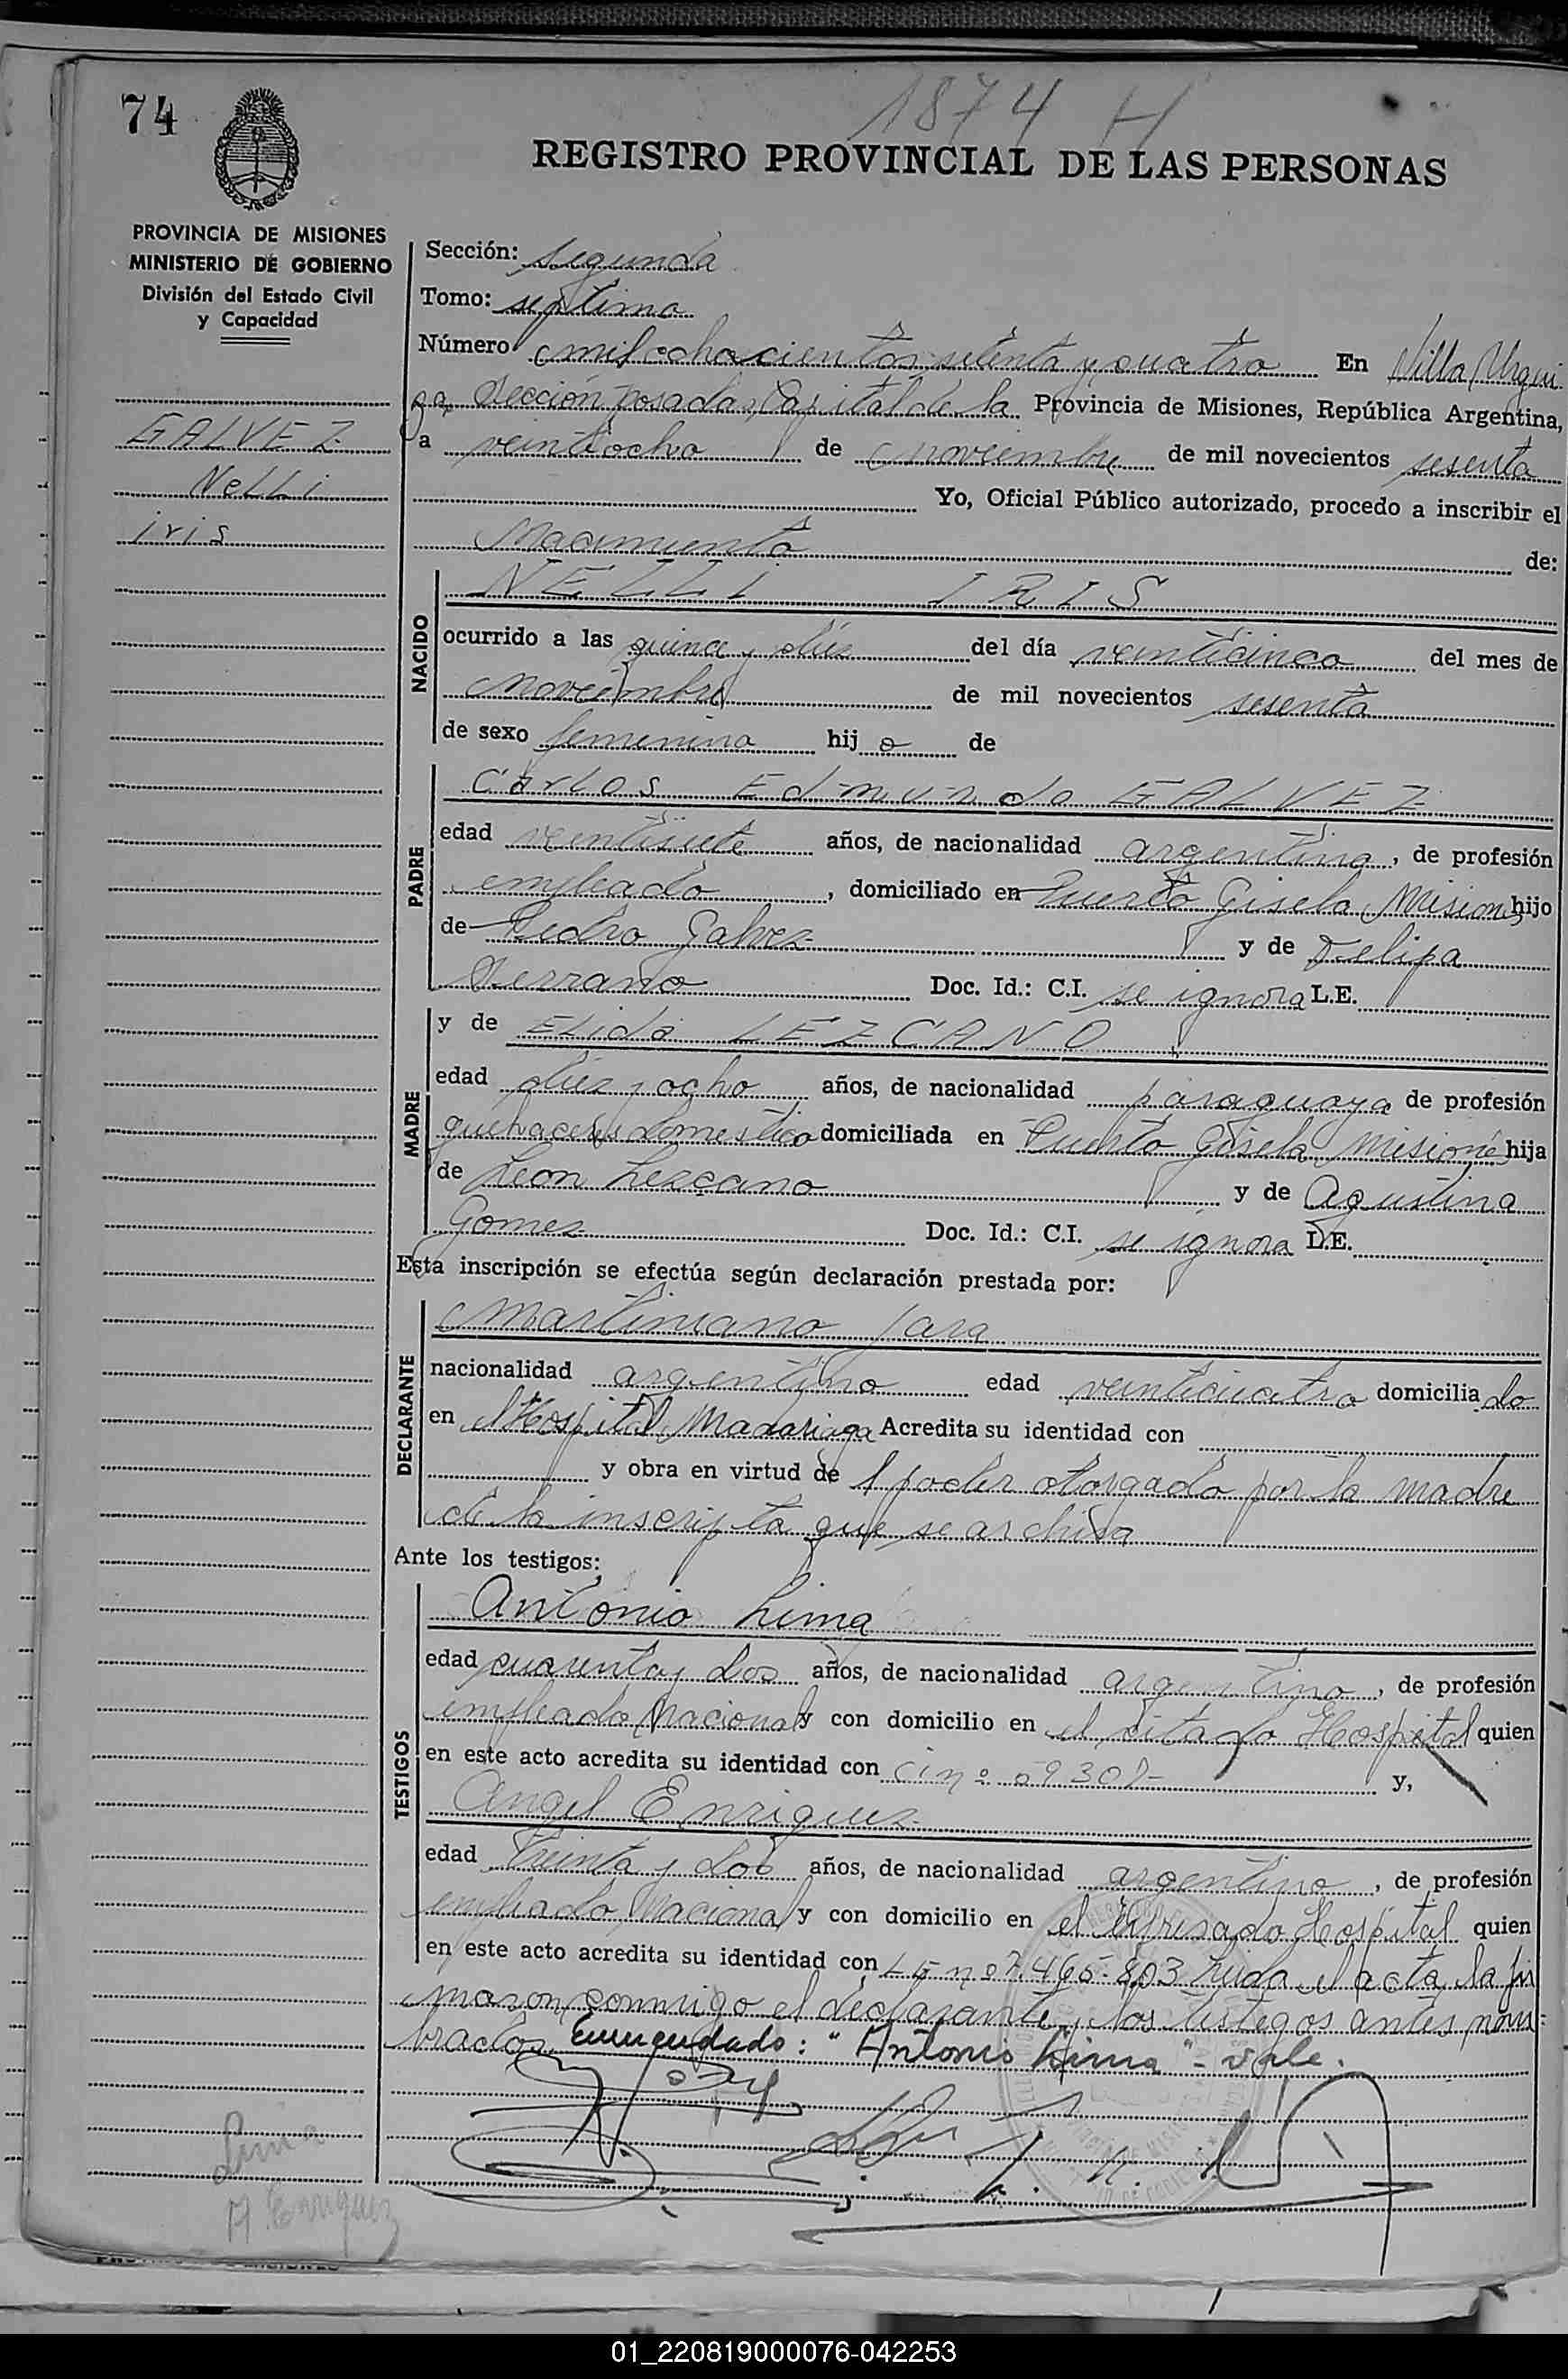 1874 H
74
REGISTRO PROVINCIAL DE LAS PERSONAS
PROVINCIA DE MISIONES
MINISTERIO DE GOBIERNO
División del Estado Civil
y Capacidad
GALVEZ
NeLLi
iris
Sección: segunda
Tomo: septimo
Número mil ochocientos setenta y cuatro En Villa Urqui
za, Sección posadas, Capital de la Provincia de Misiones, República Argentina,
a veintiocho de noviembre de mil novecientos sesenta
Yo, Oficial Público autorizado, procedo a inscribir el
Nacimiento de:
NACIDO
NELLI IRIS
ocurrido a las quince y diez del día veinticinco del mes de
noviembre de mil novecientos sesenta
de sexo femenino hij a de
PADRE
Carlos Edmundo GALVEZ
edad veintisiete años, de nacionalidad argentina, de profesión
empleado, domiciliado en Puerto Gisela, Misiones hijo
de Pedro Galvez y de Felipa
Serrano Doc. Id.: C.I. se ignora L.E.
MADRE
y de ELida LEZCANO
edad diez y ocho años, de nacionalidad paraguaya de profesión
quehaceres domestico domiciliada en Puerto Gisela, Misiones hija
de Leon Lezcano y de Agustina
Gomez Doc. Id.: C.I. se ignora L.E.
Esta inscripción se efectúa según declaración prestada por:
DECLARANTE
Martiniano Jara
nacionalidad argentino edad veinticuatro domicilia do
en el Hospital Madariaga Acredita su identidad con
y obra en virtud de l poder otorgado por la madre
de la inscripta que se archiva
Ante los testigos:
TESTIGOS
Antonio Lima
edad cuarenta y dos años, de nacionalidad argentino, de profesión
empleado Nacional y con domicilio en el citado Hospital quien
en este acto acredita su identidad con ci nº y,
Angel Enriquez
edad treinta y dos años, de nacionalidad argentino, de profesión
empleado Nacional y con domicilio en el expresado Hospital quien
en este acto acredita su identidad con LE nº 7.465.803 Leida el acta, la fir
maron conmigo el declarante y los testigos antes nom-
brados. Enmendado: "Antonio Lima" - vale.
Lima
A. Enriquez
01_220819000076-042253